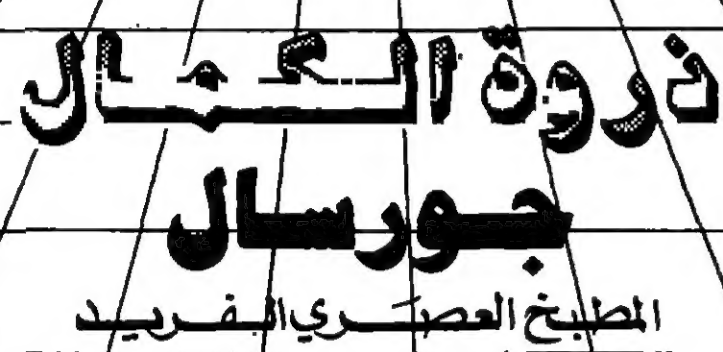 ذروة الكمال
جورسال
المطبخ العصري الفريد